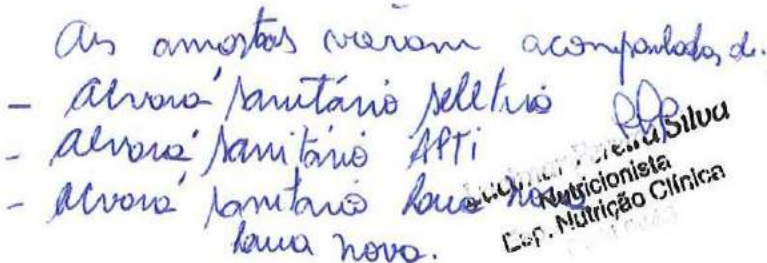 As amostras vieram acompanhadas de.
- Alvará Sanitário
- Alvará Sanitário APTi
- Alvará Sanitário nova
nova.
Pereira Silva
Nutricionista
Esp. Nutrição Clínica